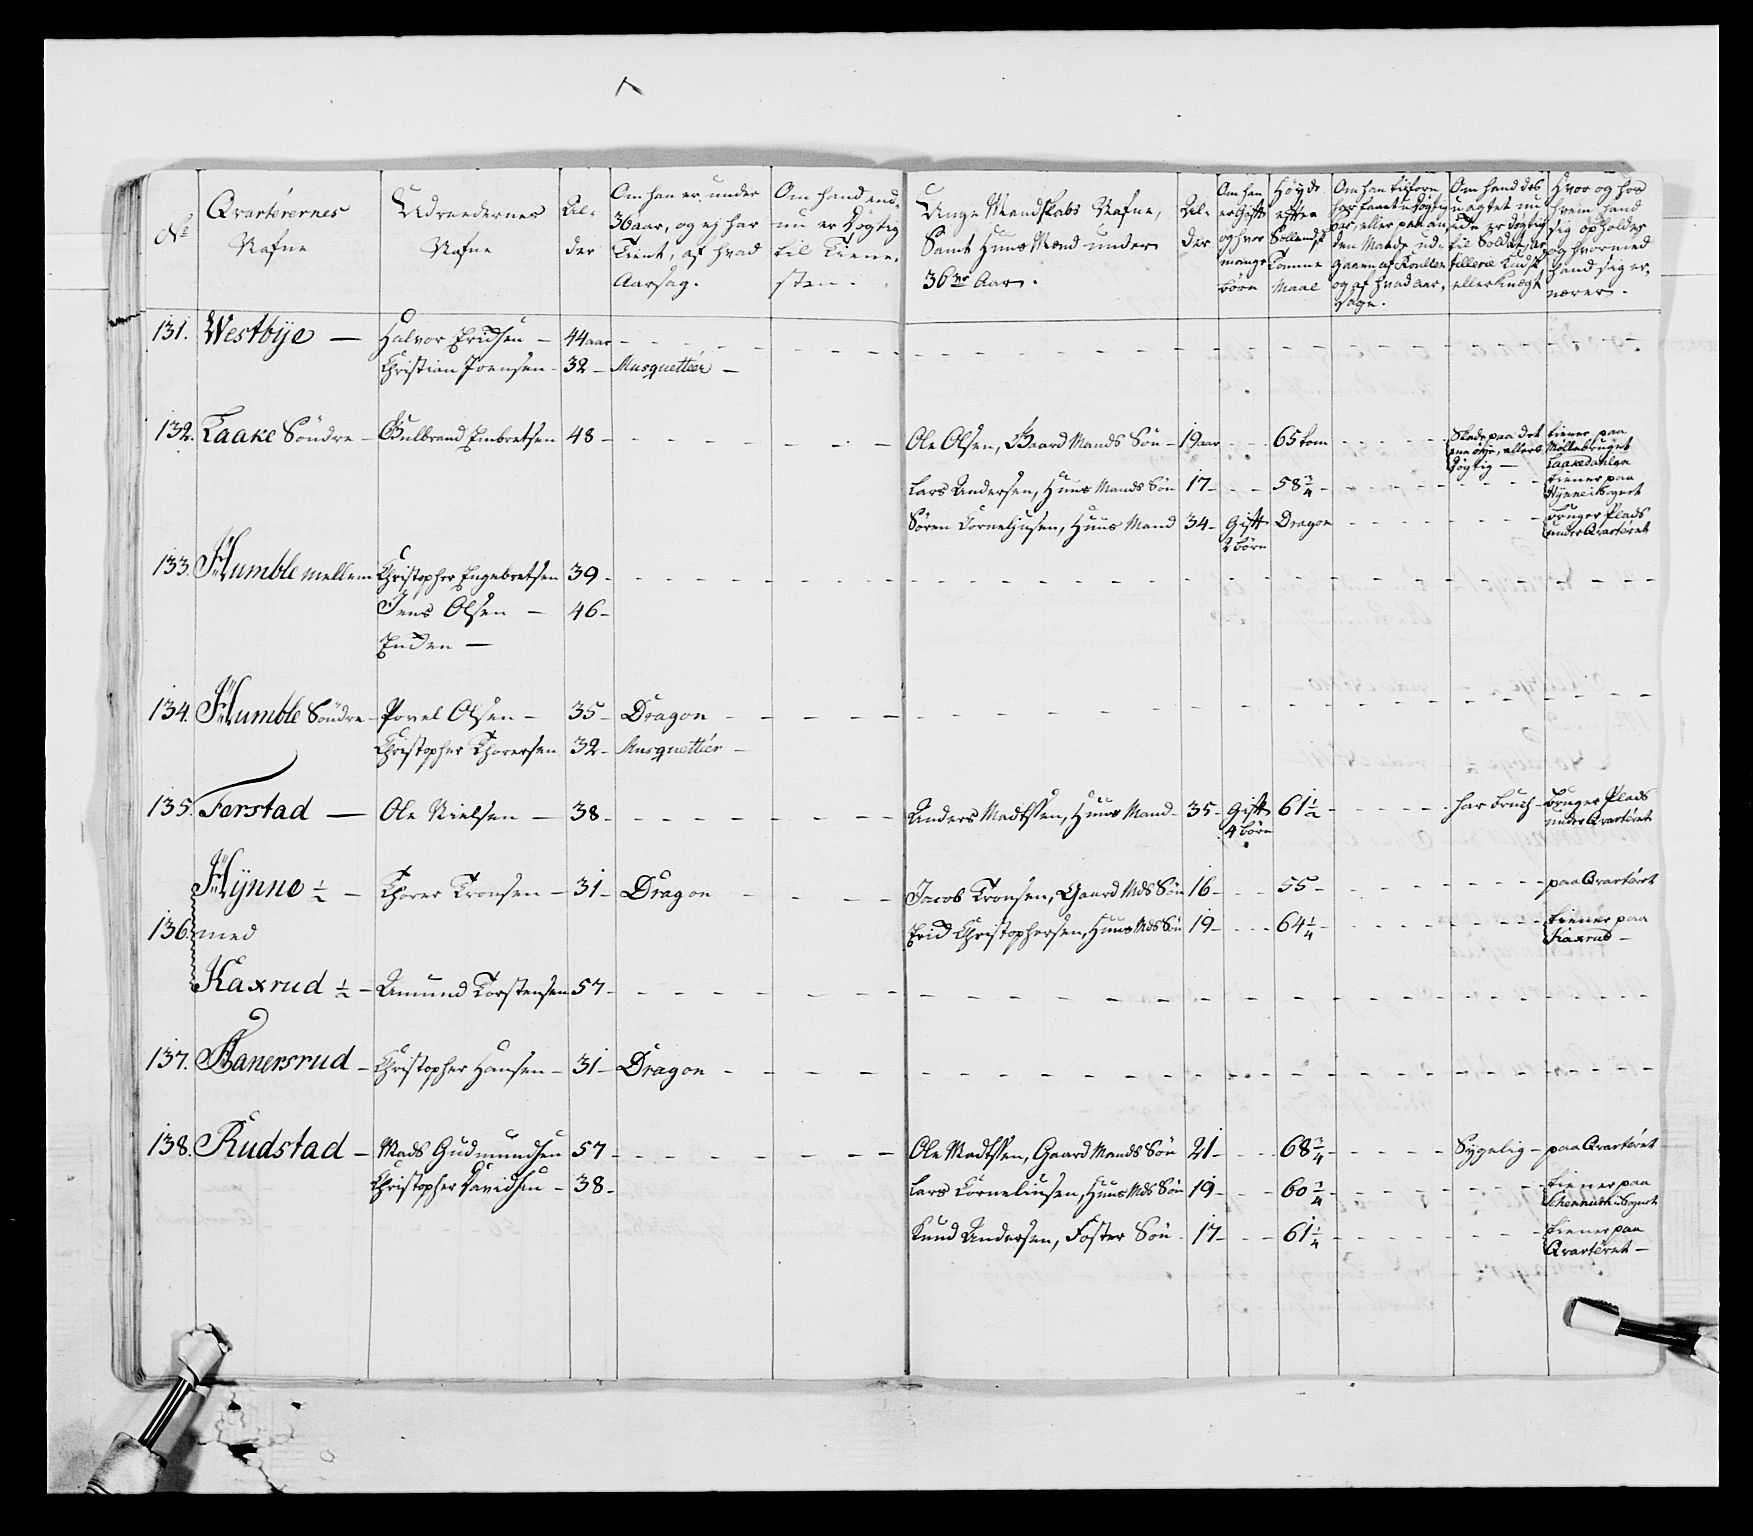 No
Qvarterernes
Nafne
Udreedernes
Nafne
Al-
der
Om han er under
36 aar, og ej har
Tient, af hvad
Aarsag.
Om hand end-
nu er dygtig
til Tiene-
sten.
Unge Mandskabs Nafne,
Samt Huus Mænd under
36 Aar.
Al-
der
Om han
er Gift
og hvor
mange
børn
Høyde
efter
Sollandsk
Tomme
Maal
Om han tilforn
og af hvad aar-
sage.
Om hand des
uagtet nu
er dygtig
til Soldat, Ar-
tillerie Kudsk
eller Knegt
Hvor og hos
hvem hand
sig opholder
og hvormed
hand sig er-
nærer.
131. Westbÿe — Halvor Eridsen — 44 aar
Christian Joensen - 32 - Musquetteer —
132. Laake Söndre - Gulbrand Embretsen 48 - Ole Olsen, Gaard Mands Sön - 19 aar 65 tom Skade paa det
ene öye, ellers
dygtig — tiener paa
Møllebruget
Laakedahlen
Lars Andersen, Huus Mands Sön 17 - 58 3/4 - tiener paa
Hÿnne i Sognet
Sören Corneliusen, Huus Mand 34 - Gift
2 börn Dragon bruger Plads
under Qvarteret
133. Humble mellem Christopher Engebretsen 39 -
Jens Olsen — 46 -
Enden —
134. Humble Söndre - Povel Olsen — 35 - Dragon
Christopher Thorersen 32 - Musquetteer —
135. Forstad — Ole Nielsen — 38 - Anders Madtssen, Huus Mand - 35 - Gift
4 börn 61 1/2 har bruch - bruger Plads
under Qvarteret
Hÿnne 1/2 — Thorer Tronsen — 31 - Dragon Jacob Tronsen, Gaard Mds Sön 16 - 55 - paa Qvarteret
136. med Erid Christophersen, Huus Mds Sön 19 - 64 1/4 - tiener paa
Kaxrud —
Kaxrud 1/2 — Amund Torstensen 57 -
137. Hanersrud - Christopher Hansen - 31 - Dragon
138. Rudstad — Mads Gudmundsen 57 - Ole Madtssen, Gaard Mands Sön 21 - 68 3/4 - Sygelig - paa Qvarteret
Christopher Davidsen — 38 - Lars Corneliusen, Huus Mds Sön 19 - 60 3/4 tiener paa
i Sognet
Knud Andersen, Foster Sön - 17 - 61 1/4 tiener paa
Qvarteret —